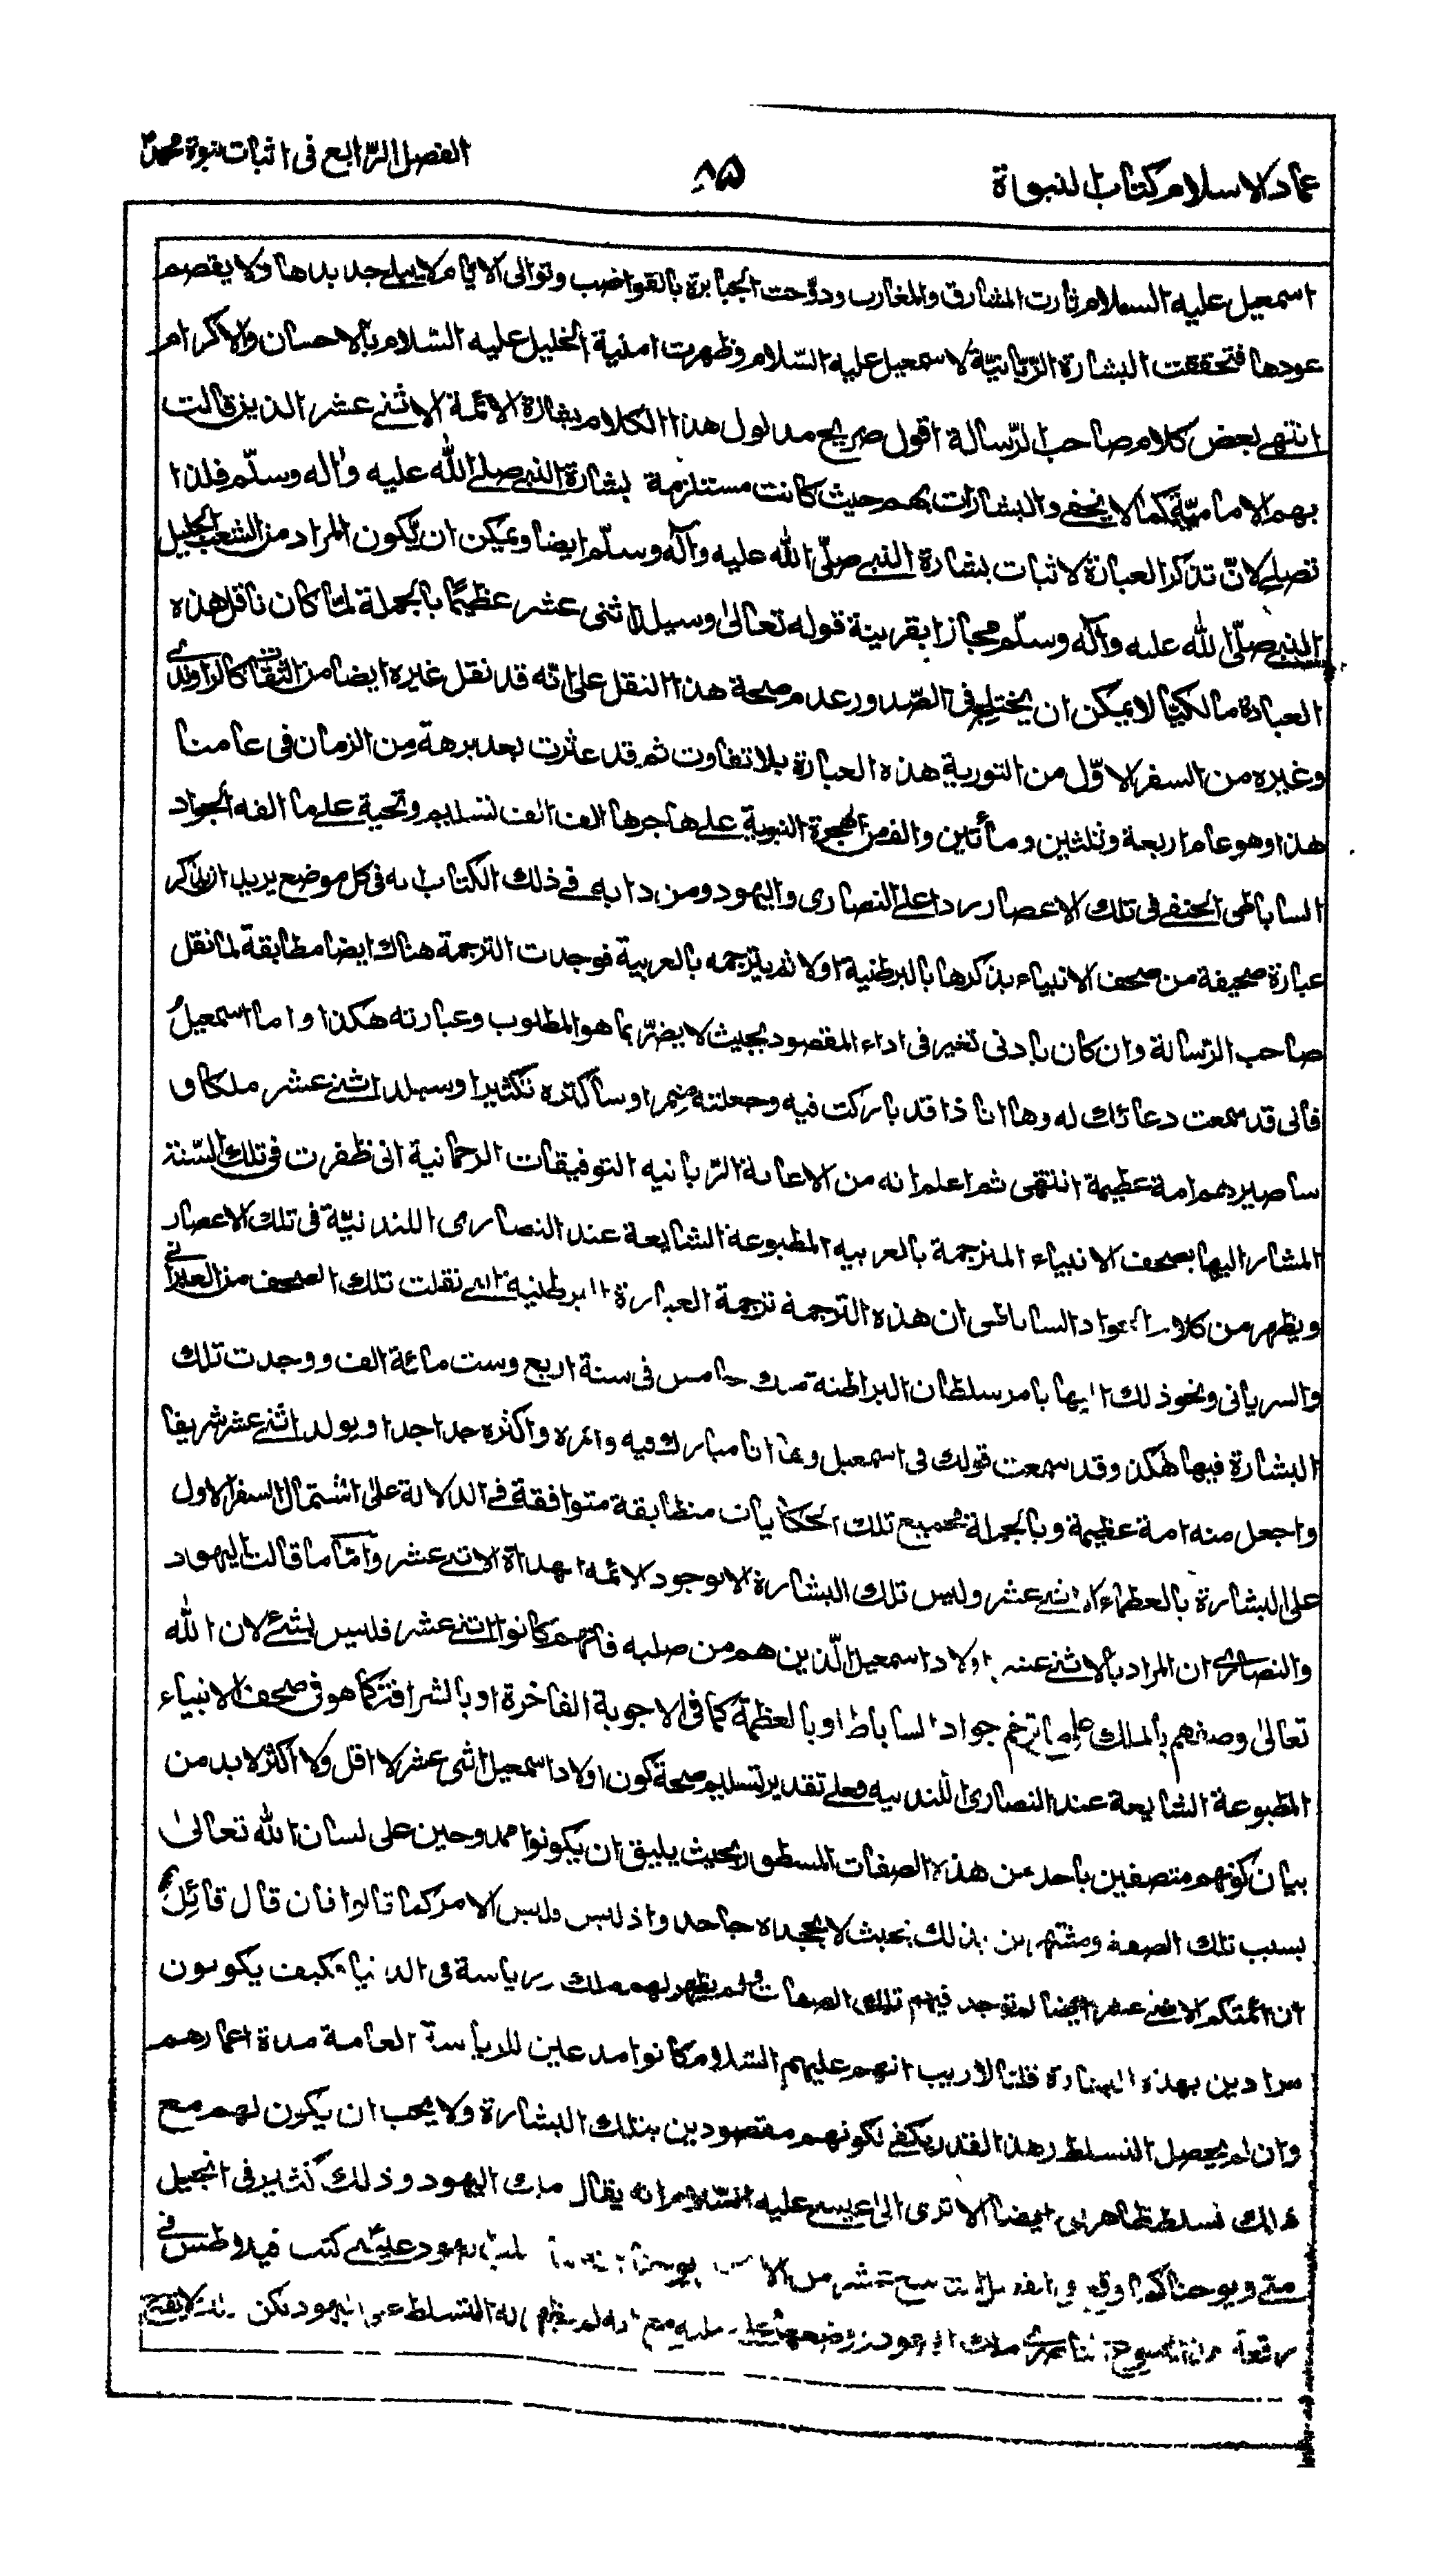 عماد الاسلام كتاب النبوة
۸۵
الفصل الرّابع فى اثبات نبوة محمدؐ
اسمعيل عليه السلام ثارت المشارق والمغارب ودوّخت الجبابرة بالقواضب وتوالى الايام لا يبلى جديدها ولا يقصم
عودها فتحققت البشارة الرّبّانيّة لاسمعيل عليه السّلام وظهرت امنية الخليل عليه السّلام بالاحسان والاكرام
انتهى بعض كلام صاحب الرّسالة اقول صريح مدلول هذا الكلام بشارة الائمة الاثنى عشر الذين قالت
بهم الاماميّة كما لا يخفى والبشارات بهم حيث كانت مستلزمة بشارة النبى صلى الله عليه واله وسلّم فلذا
تصلى لانّ تذكر العبارة لاثبات بشارة النبى صلّى الله عليه وآله وسلّم ايضا ويمكن ان يّكون المراد من الشعب الجليل
النبى صلّى الله عليه وآله وسلّم مجازا بقرينة قوله تعالىٰ وسيلد اثنى عشر عظيمًا بالجملة لمّا كان ناقل هذه
العبارة مالكيّا لا يمكن ان يختلج فى الصّدور عدم صحة هذا النقل على انّه قد نقل غيره ايضا من الثقات كالراوندى
وغيره من السفر الاوّل من التورية هذه العبارة بلا تفاوت ثم قد عثرت بعد برهة من الزمان فى عامنا
هذا وهو عام اربعة وثلثين ومأتين والف من الهجرة النبوية على هاجرها الف الف تسليم وتحية على ما الفه الجواد
الساباطى الحنفى فى تلك الاعصار ردا على النصارى واليهود ومن دابه فى ذلك الكتاب انه فى كل موضع يريد ان يذكر
عبارة صحيفة من صحف الانبياء يذكرها بالبرطنية اولا ثم يترجمه بالعربية فوجدت الترجمة هناك ايضا مطابقة لما نقل
صاحب الرّسالة وان كان بادنى تغير فى اداء المقصود بحيث لا يضرّ بما هو المطلوب وعبارته هكذا واما اسمعيل
فانى قد سمعت دعائك له وها انا ذا قد باركت فيه وجعلته مثمرا وساكثره تكثيرا وسيلد اثنى عشر ملكا و
ساصيرهم امة عظيمة انتهى ثم اعلم انه من الاعانة الرّبانيه التوفيقات الرحمانية انى ظفرت فى تلك السّنة
المشار اليها بصحف الانبياء المترجمة بالعربيه المطبوعة الشايعة عند النصارى اللندنيّة فى تلك الاعصار
ويظهر من كلام الجواد الساباطى ان هذه الترجمة ترجمة العبارة البرطنية التى نقلت تلك الصحف من العبرانى
والسريانى ونحو ذلك اليها بامر سلطان البراطنة جامس فى سنة اربع وست مائة الف ووجدت تلك
البشارة فيها هٰكذا وقد سمعت قولك فى اسمعيل وها انا مبارك فيه واثمره واكثره جدا جدا ويولد اثنى عشر شريفا
واجعل منه امة عظيمة وبالجملة فجميع تلك الحكايات متطابقة متوافقة فى الدلالة على اشتمال السفر الاول
على البشارة بالعظماء الاثنى عشر وليس تلك البشارة الا بوجود الائمه الهداة الاثنى عشر وامّا ما قالت اليهود
والنصارى ان المراد بالاثنى عشر اولاد اسمعيل الّذين هم من صلبه فانهم كانوا اثنى عشر فليس بشئ لان الله
تعالىٰ وصفهم بالملك على ما ترجم جواد الساباط او بالعظمة كما فى الاجوبة الفاخرة او بالشرافة كما هو فى صحف الانبياء
المطبوعة الشايعة عند النصارى اللندنيه فعلى تقدير تسليم صحة كون اولاد اسمعيل اثنى عشر لا اقل ولا اكثر لا بد من
بيان كونهم متصفين باحد من هذه الصفات المسطورة بحيث يليق ان يكونوا ممدوحين على لسان الله تعالىٰ
بسبب تلك الصفة ومشتهرين بذلك بحيث لا يجحده جاحد واذ ليس وليس الامر كما قالوا فان قال قائل
ان ائمتكم الاثنى عشر ايضا لم توجد فيهم تلك الصفات ولم يظهر لهم ملك رياسة فى الدنيا فكيف يكونون
مرادين بهذه البشارة قلنا لا ريب انهم عليهم السّلام كانوا مدعين للرياسة العامة مدة اعمارهم
وان لم يحصل التسلط وهذا القدر يكفى لكونهم مقصودين بتلك البشارة ولا يجب ان يكون لهم مع
ذلك تسلط ظاهرى ايضا الا ترى الى عيسى عليه السّلام انه يقال ملك اليهود وذلك كثير فى انجيل
متى ويوحنا كما وقع فى التاسع عشر من يوحنا كتب فيلاطس فى
رقعة يسوع ناصرى ملك اليهود ووضعها على صليبه مع انه لم يظهر له التسلط على اليهود لكن